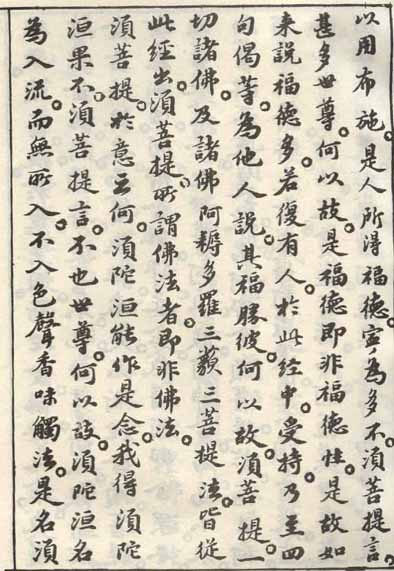 以用布施。是人所得福德寧為多不。須菩提言。
甚多。世尊。何以故。是福德即非福德性。是故如
来説福德多。若復有人。於此経中。受持乃至四
句偈等。為他人説。其福勝彼。何以故。須菩提。一
切諸佛。及諸佛阿耨多羅三藐三菩提法。皆従
此経出。須菩提。所謂佛法者。即非佛法。
須菩提。於意云何。須陀洹能作是念。我得須陀
洹果不。須菩提言。不也。世尊。何以故。須陀洹名
為入流。而無所入。不入色聲香味觸法。是名須